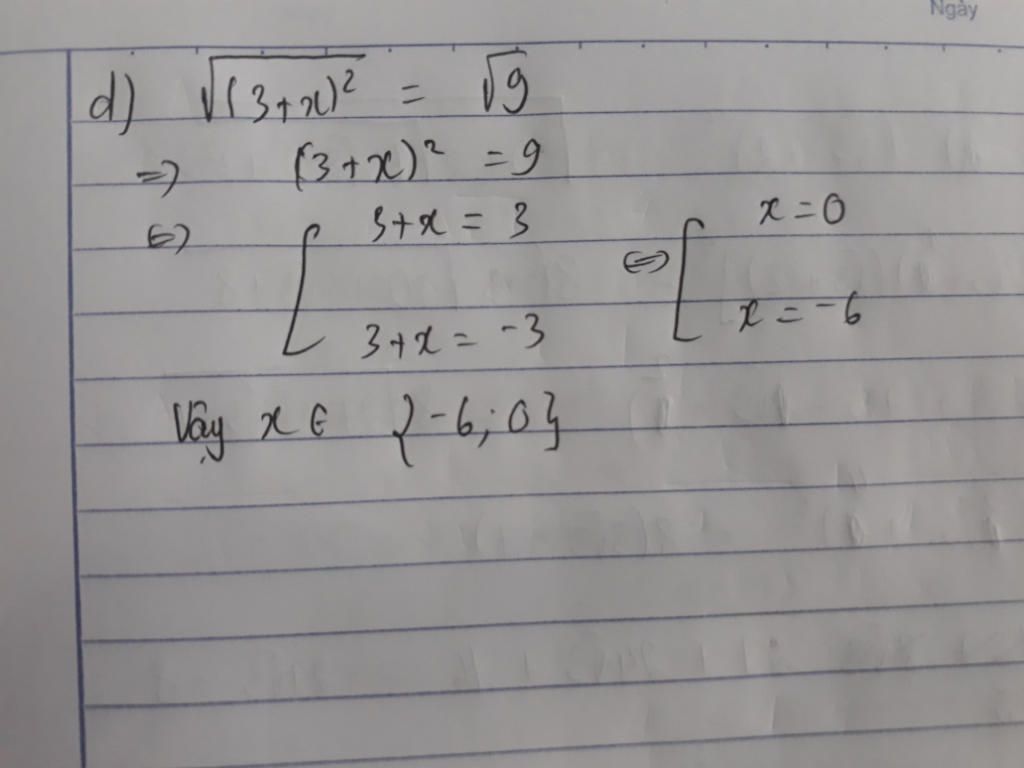 Ngày
d) √(3+x)² = √9
=> (3+x)² = 9
<=> [ 3+x = 3 <=> [ x = 0
3+x = -3 x = -6
Vậy x ∈ {-6; 0}